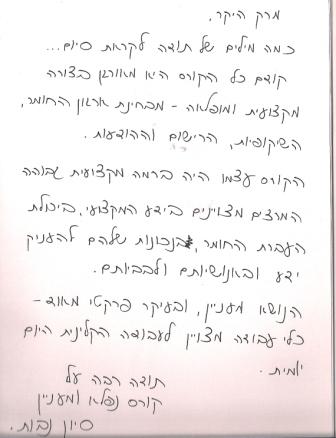 מרק היקר,
כמה מילים של תודה לקראת סיום...
קודם כל הקורס היא מאורגן בצורה
מקצועית ומופלאה - מבחינת ארגון החומר,
השיקופיות, הרישום וההודעות.
הקורס עצמו היה ברמה מקצועית גבוהה
המרצים מצויינים בידע המקצועי, ביכולת
העברת החומר, בנכונות שלהם להעניק
ידע ובאנושיותם ולבביותם.
הנושא מעניין, ובעיקר פרקטי מאוד -
כלי עבודה מצויין לעבודה הקלינית היום
יומית.
תודה רבה על
קורס נפלא ומעניין
סיון נבות.